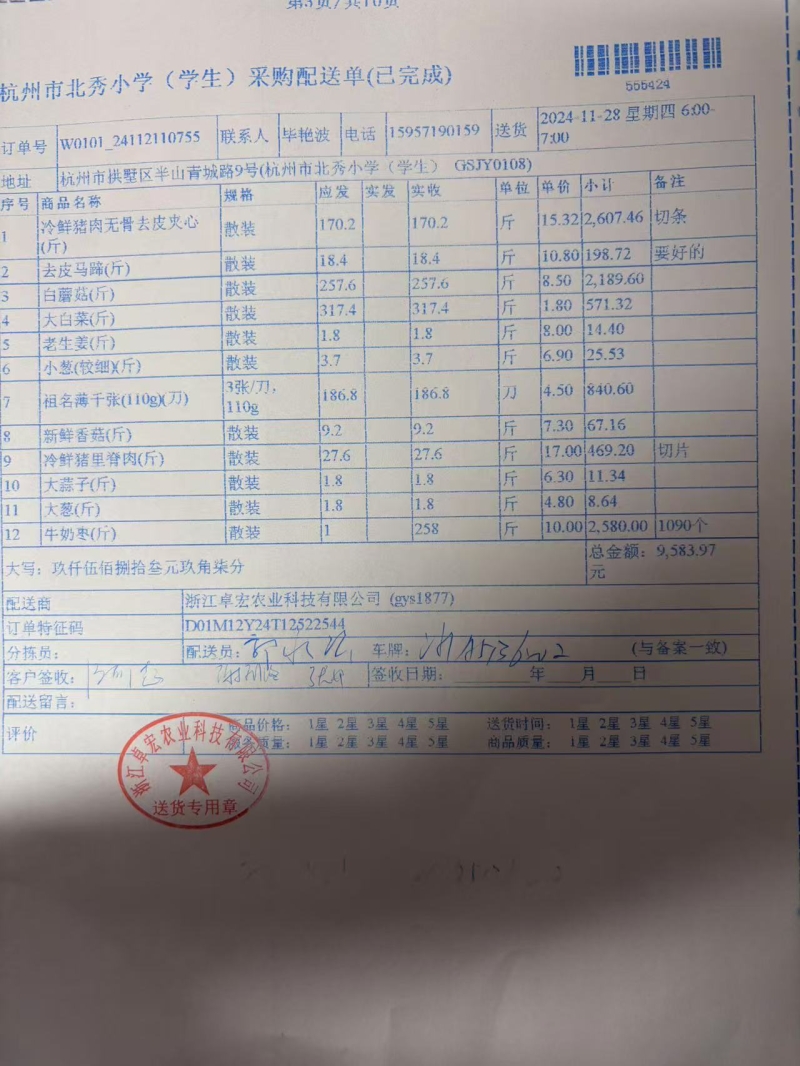 第3页/共10页
杭州市北秀小学（学生）采购配送单(已完成)
556424
订单号 W0101_24112110755 联系人 毕艳波 电话 15957190159 送货 2024-11-28 星期四 6:00-
7:00
地址 杭州市拱墅区半山青城路9号(杭州市北秀小学（学生） GSJY0108)
序号 商品名称 规格 应发 实发 实收 单位 单价 小计 备注
1 冷鲜猪肉无骨去皮夹心 散装 170.2 170.2 斤 15.32 2,607.46 切条
(斤)
2 去皮马蹄(斤) 散装 18.4 18.4 斤 10.80 198.72 要好的
3 白蘑菇(斤) 散装 257.6 257.6 斤 8.50 2,189.60
4 大白菜(斤) 散装 317.4 317.4 斤 1.80 571.32
5 老生姜(斤) 散装 1.8 1.8 斤 8.00 14.40
6 小葱(较细)(斤) 散装 3.7 3.7 斤 6.90 25.53
7 祖名薄千张(110g)(刀) 3张/刀， 186.8 186.8 刀 4.50 840.60
110g
8 新鲜香菇(斤) 散装 9.2 9.2 斤 7.30 67.16
9 冷鲜猪里脊肉(斤) 散装 27.6 27.6 斤 17.00 469.20 切片
10 大蒜子(斤) 散装 1.8 1.8 斤 6.30 11.34
11 大葱(斤) 散装 1.8 1.8 斤 4.80 8.64
12 牛奶枣(斤) 散装 1 258 斤 10.00 2,580.00 1090个
大写：玖仟伍佰捌拾叁元玖角柒分 总金额：9,583.97
元
配送商 浙江卓宏农业科技有限公司 (gys1877)
订单特征码 D01M12Y24T12522544
分拣员： 配送员： 车牌： (与备案一致)
客户签收： 签收日期： 年 月 日
配送留言：
评价 商品价格： 1星 2星 3星 4星 5星 送货时间： 1星 2星 3星 4星 5星
服务质量： 1星 2星 3星 4星 5星 商品质量： 1星 2星 3星 4星 5星
浙江卓宏农业科技有限公司
送货专用章